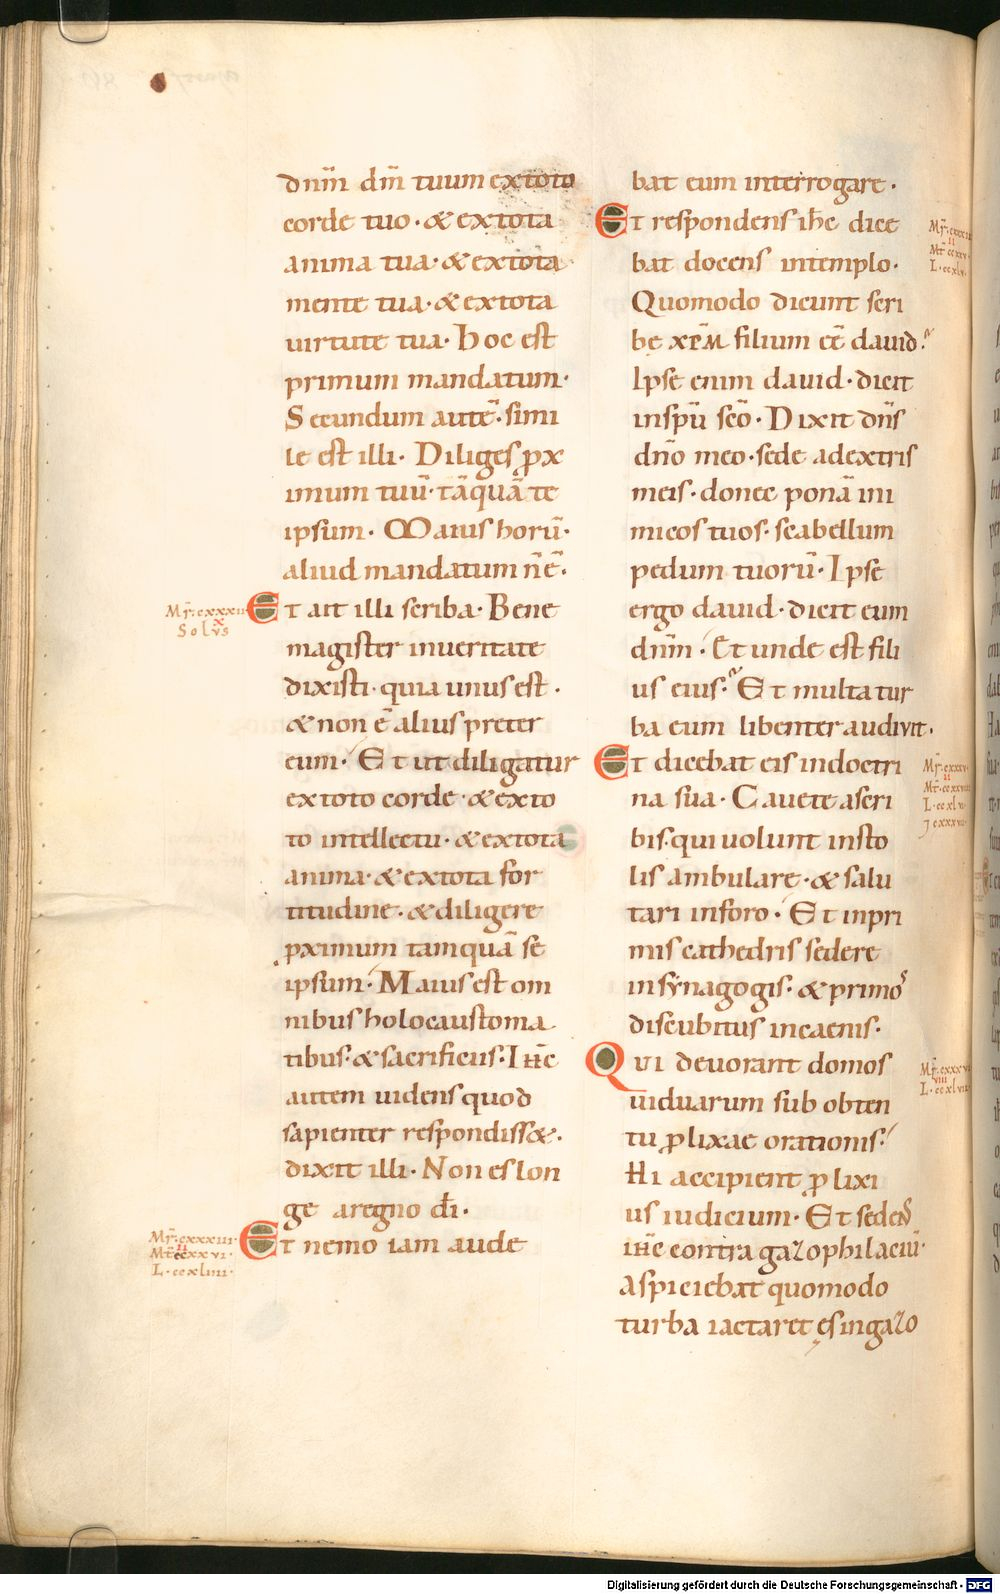 dnm̅ dm̅ tuum extoto
corde tuo · & extota
anima tua · & extota
mente tua · & extota
uirtute tua · Hoc est
primum mandatum ·
Secundum aute̅ · simi
le est illi · Diliges ꝓx
imum tuu̅ · ta̅qua̅ te
ipsum · Maius horu̅ ·
aliud mandatum n̅ e̅ ·
Mr̅ · cxxxii
x
Solus
Et ait illi scriba · Bene
magister inueritate
dixisti · quia unus est ·
& non e̅ alius preter
eum · Et ut diligatur
ex toto corde · & exto
to intellectu · & extota
anima · & extota for
titudine · & diligere
pximum tamqua̅ se
ipsum · Maius est om
nibus holocaustoma
tibus · & sacrificiis · Ihc̅
autem uidens quod
sapienter respondiss& ·
dixit illi · Non es lon
ge aregno di̅ ·
Mr̅ · cxxxiii ·
ii
Mt̅ · ccxxvi ·
L · ccxliiii ·
Et nemo iam aude
bat eum interrogare ·
Et respondens ihc̅ dice
bat docens intemplo ·
Quomodo dicunt scri
bę xpm̅ filium ee̅ dauid ?
Ipse enim dauid · dicit
inspu̅ sco̅ · Dixit dn̅s
dn̅o meo · sede adextris
meis · donec pona̅ ini
micos tuos · scabellum
pedum tuoru̅ · Ipse
ergo dauid · dicit eum
dnm̅ · Et unde est fili
us eius ? Et multa tur
ba eum libenter audivit ·
Et dicebat eis indoctri
Mr̅ · cxxxv ·
ii
L · ccxlvi ·
na sua · Cauete ascri
bis · qui uolunt insto
lis ambulare · & salu
tari inforo · Et inpri
mis cathedris sedere
in synagogis · & primos
discubitus incaenis ·
Qui deuorant domos
uiduarum sub obten
tu ꝓlixae orationis ·
Hi accipient ꝓlixi
us iudicium · Et sedens
ihc̅ contra gazophilaciu̅ ·
Aspiciebat quomodo
turba iactaret ęs ingazo
Digitalisierung gefördert durch die Deutsche Forschungsgemeinschaft - DFG